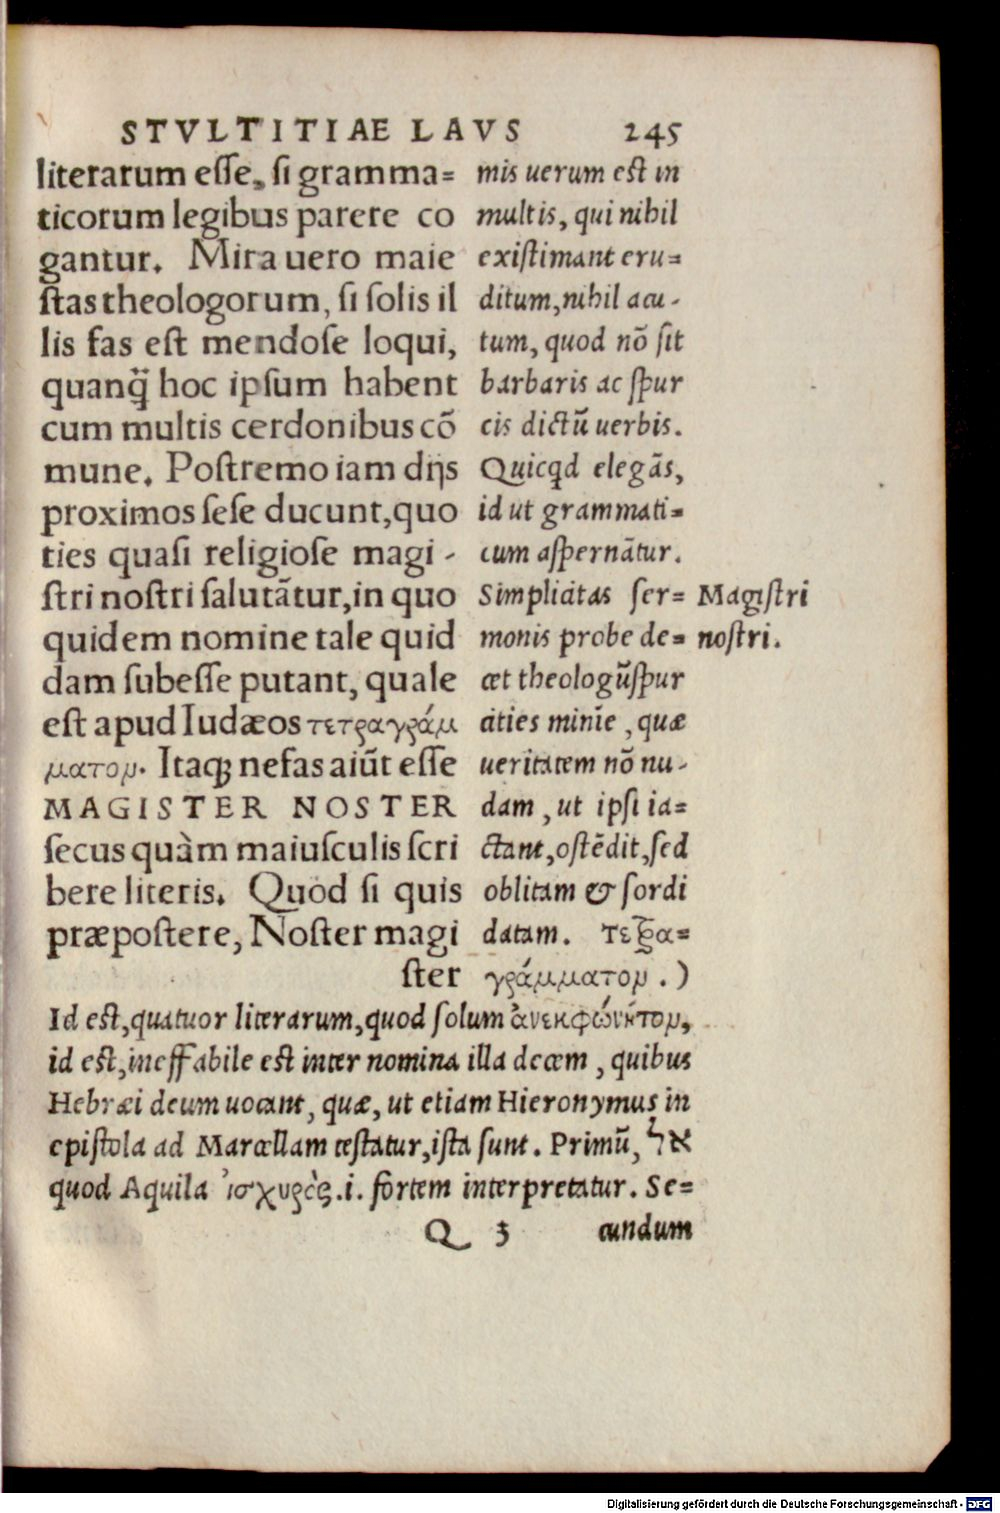 STVLTITIAE LAVS 245
literarum esse, si gramma=
ticorum legibus parere co
gantur. Mira uero maie
stas theologorum, si solis il
lis fas est mendose loqui,
quanq̃ hoc ipsum habent
cum multis cerdonibus cõ
mune. Postremo iam dijs
proximos sese ducunt, quo
ties quasi religiose magi-
stri nostri salutãtur, in quo
quidem nomine tale quid
dam subesse putant, quale
est apud Iudæos τετραγράμ
ματον. Itaqꝫ nefas aiũt esse
MAGISTER NOSTER
secus quàm maiusculis scri
bere literis. Quod si quis
præpostere, Noster magi
ster
mis uerum est in
multis, qui nihil
existimant eru=
ditum, nihil acu-
tum, quod nõ sit
barbaris ac spur
cis dictũ uerbis.
Quicqd elegãs,
id ut grammati=
cum aspernãtur.
Simplicitas ser=
monis probe de=
cet theologũ spur
cities minĩe, quæ
ueritatem nõ nu-
dam, ut ipsi ia=
ctant, ostẽdit, sed
oblitam & sordi
datam. τετρα=
γράμματον.)
Magistri
nostri.
Id est, quatuor literarum, quod solum ἀνεκφώνητον,
id est, ineffabile est inter nomina illa decem, quibus
Hebræi deum uocant, quæ, ut etiam Hieronymus in
epistola ad Marcellam testatur, ista sunt. Primũ, אל
quod Aquila ἰσχυρὸς .i. fortem interpretatur. Se=
Q 3 cundum
Digitalisierung gefördert durch die Deutsche Forschungsgemeinschaft - DFG